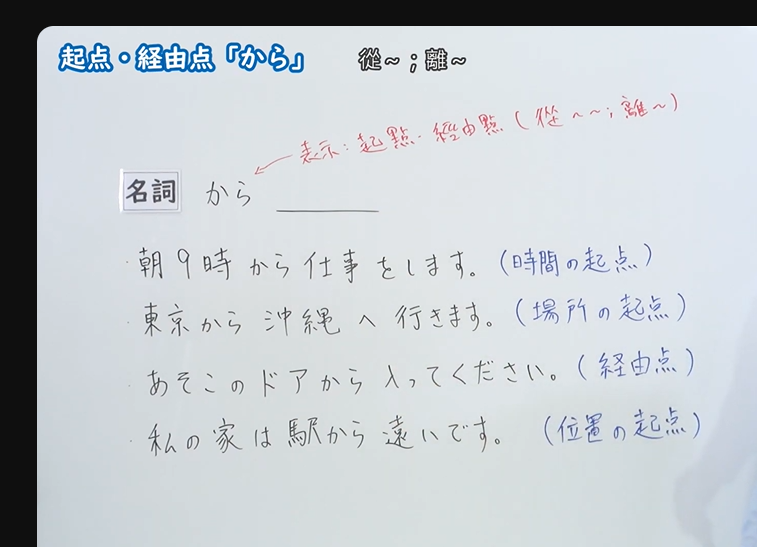 起点・経由点「から」 從~；離~
表示：起點・經由點（從～～；離～）
名詞 から ＿＿＿
・朝9時から仕事をします。（時間の起点）
・東京から沖縄へ行きます。（場所の起点）
・あそこのドアから入ってください。（経由点）
・私の家は駅から遠いです。（位置の起点）